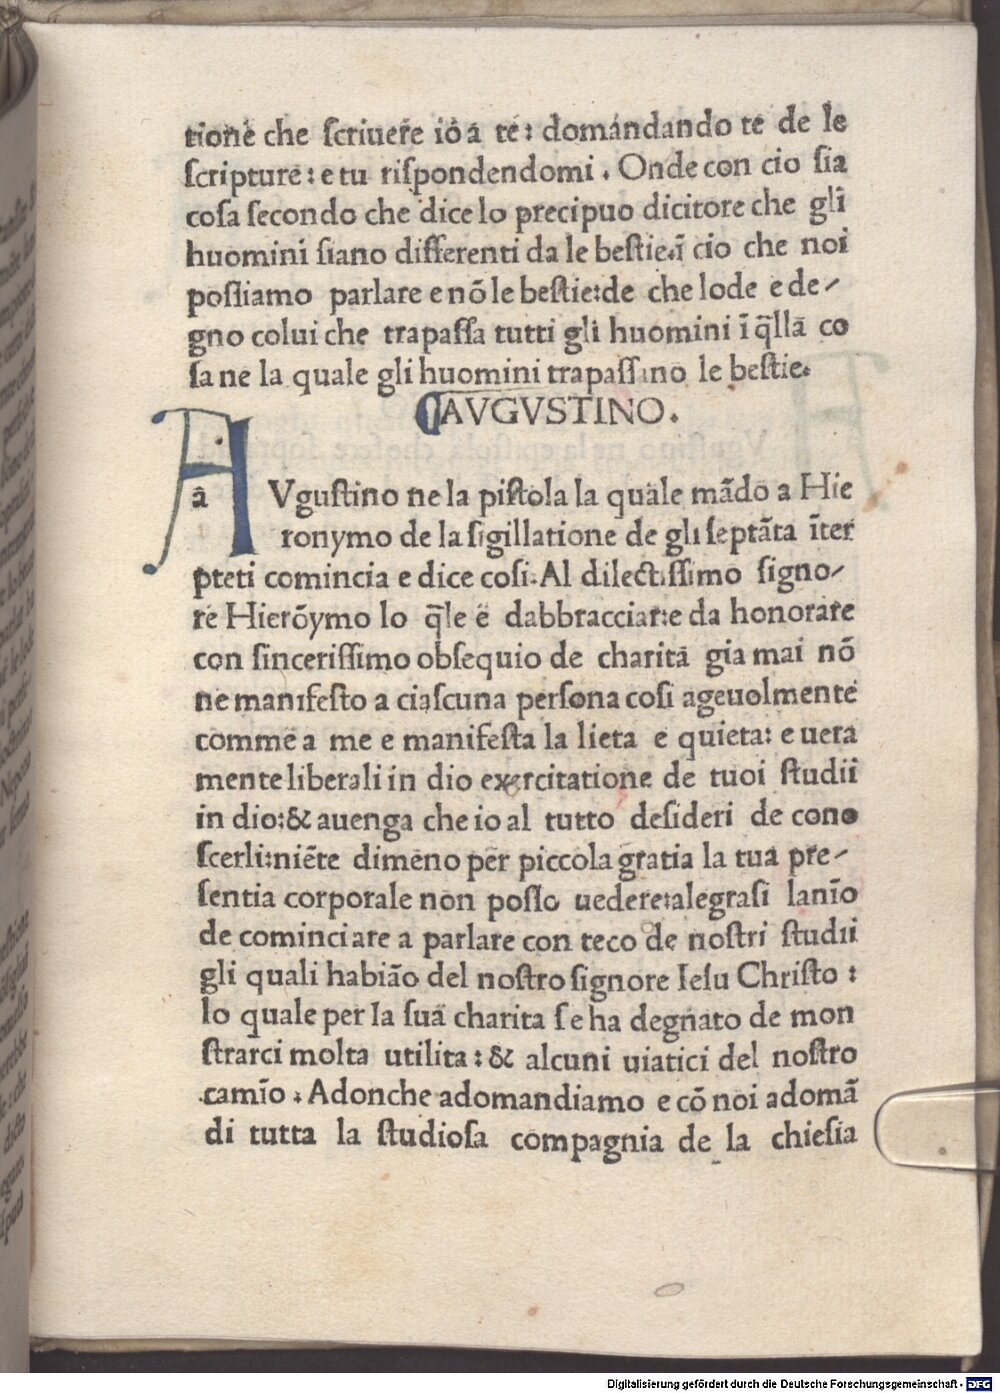 tione che ſcriuere io a te: domandando te de le
ſcripture: e tu riſpondendomi. Onde con cio ſia
coſa ſecondo che dice lo precipuo dicitore che gli
huomini ſiano differenti da le beſtie.ĩ cio che noi
poſſiamo parlare e nõ le beſtie:de che lode e de-
gno colui che trapaſſa tutti gli huomini ĩ q̃lla co
ſa ne la quale gli huomini trapaſſano le beſtie.
¶AVGVSTINO.
A Vguſtino ne la piſtola la quale mãdo a Hie
ronymo de la ſigillatione de gli ſeptãta ĩter
preti comincia e dice coſi.Al dilectiſſimo ſigno-
re Hierõymo lo q̃le e dabbracciare e da honorare
con ſinceriſſimo obſequio de charita gia mai nõ
ne manifeſto a ciaſcuna perſona coſi ageuolmente
comme a me e manifeſta la lieta e quieta: e uera
mente liberali in dio exercitatione de tuoi ſtudii
in dio:& auenga che io al tutto deſideri de cono
ſcerli:niẽte dimeno per piccola gratia la tua pre-
ſentia corporale non poſſo uedere:alegraſi lanĩo
de cominciare a parlare con teco de noſtri ſtudii
gli quali habião del noſtro ſignore Ieſu Chriſto :
lo quale per la ſua charita ſe ha degnato de mon
ſtrarci molta utilita: & alcuni uiatici del noſtro
camĩo. Adonche adomandiamo e cõ noi adomã
di tutta la ſtudioſa compagnia de la chieſia
Digitalisierung gefördert durch die Deutsche Forschungsgemeinschaft - DFG